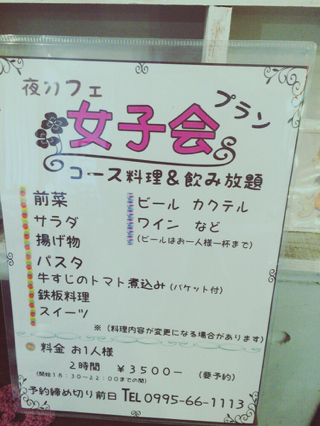 夜カフェ
女子会
プラン
コース料理&飲み放題
前菜
サラダ
揚げ物
パスタ
牛すじのトマト煮込み(バケット付)
鉄板料理
スイーツ
ビール カクテル
ワイン など
(ビールはお一人様一杯まで)
※(料理内容が変更になる場合があります)
料金 お1人様
2時間 ¥3500- (要予約)
(開始18:30~22:00までの間)
予約締め切り前日 TEL 0995-66-1113